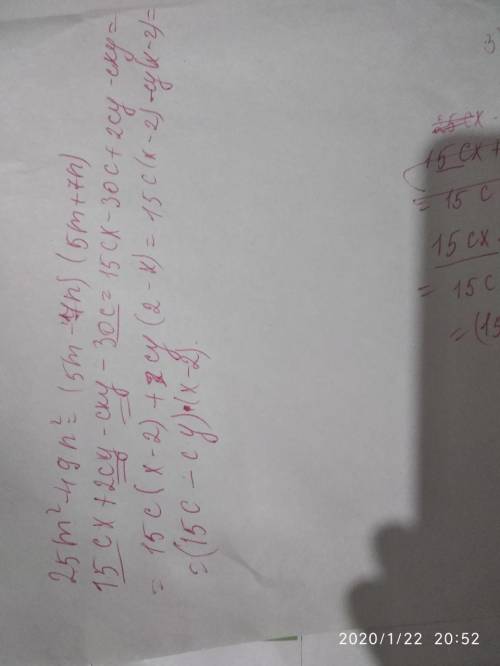 25m²-49n² = (5m-7n)(5m+7n)
15cx+2cy-cxy-30c=15cx-30c+2cy-cxy=
= 15c(x-2)+cy(2-x)=15c(x-2)-cy(x-2)=
=(15c-cy)·(x-2).
15cx
= 15c
15cx
= 15c
=(15
2020/1/22 20:52